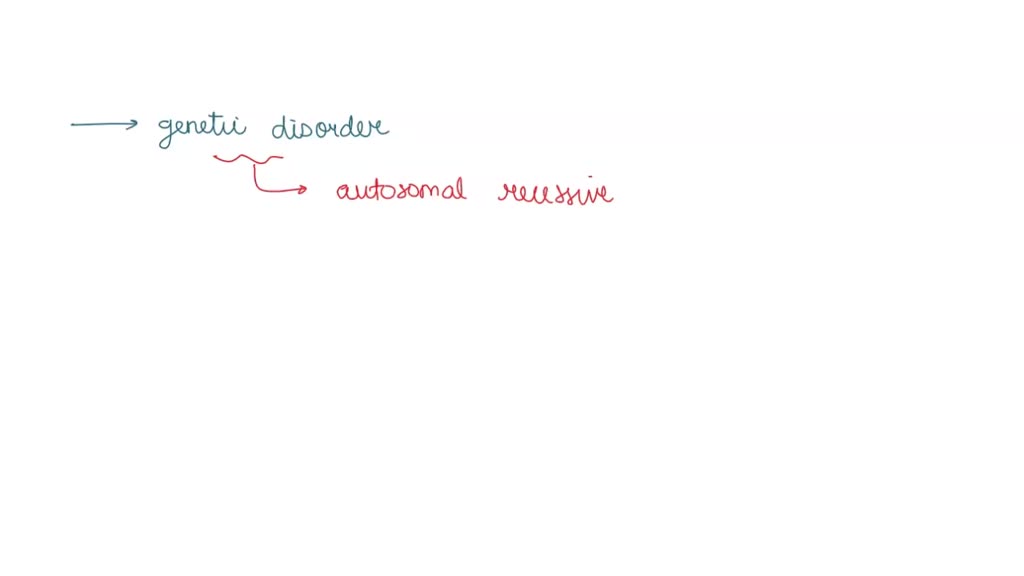 → genetic disorder
→ autosomal recessive